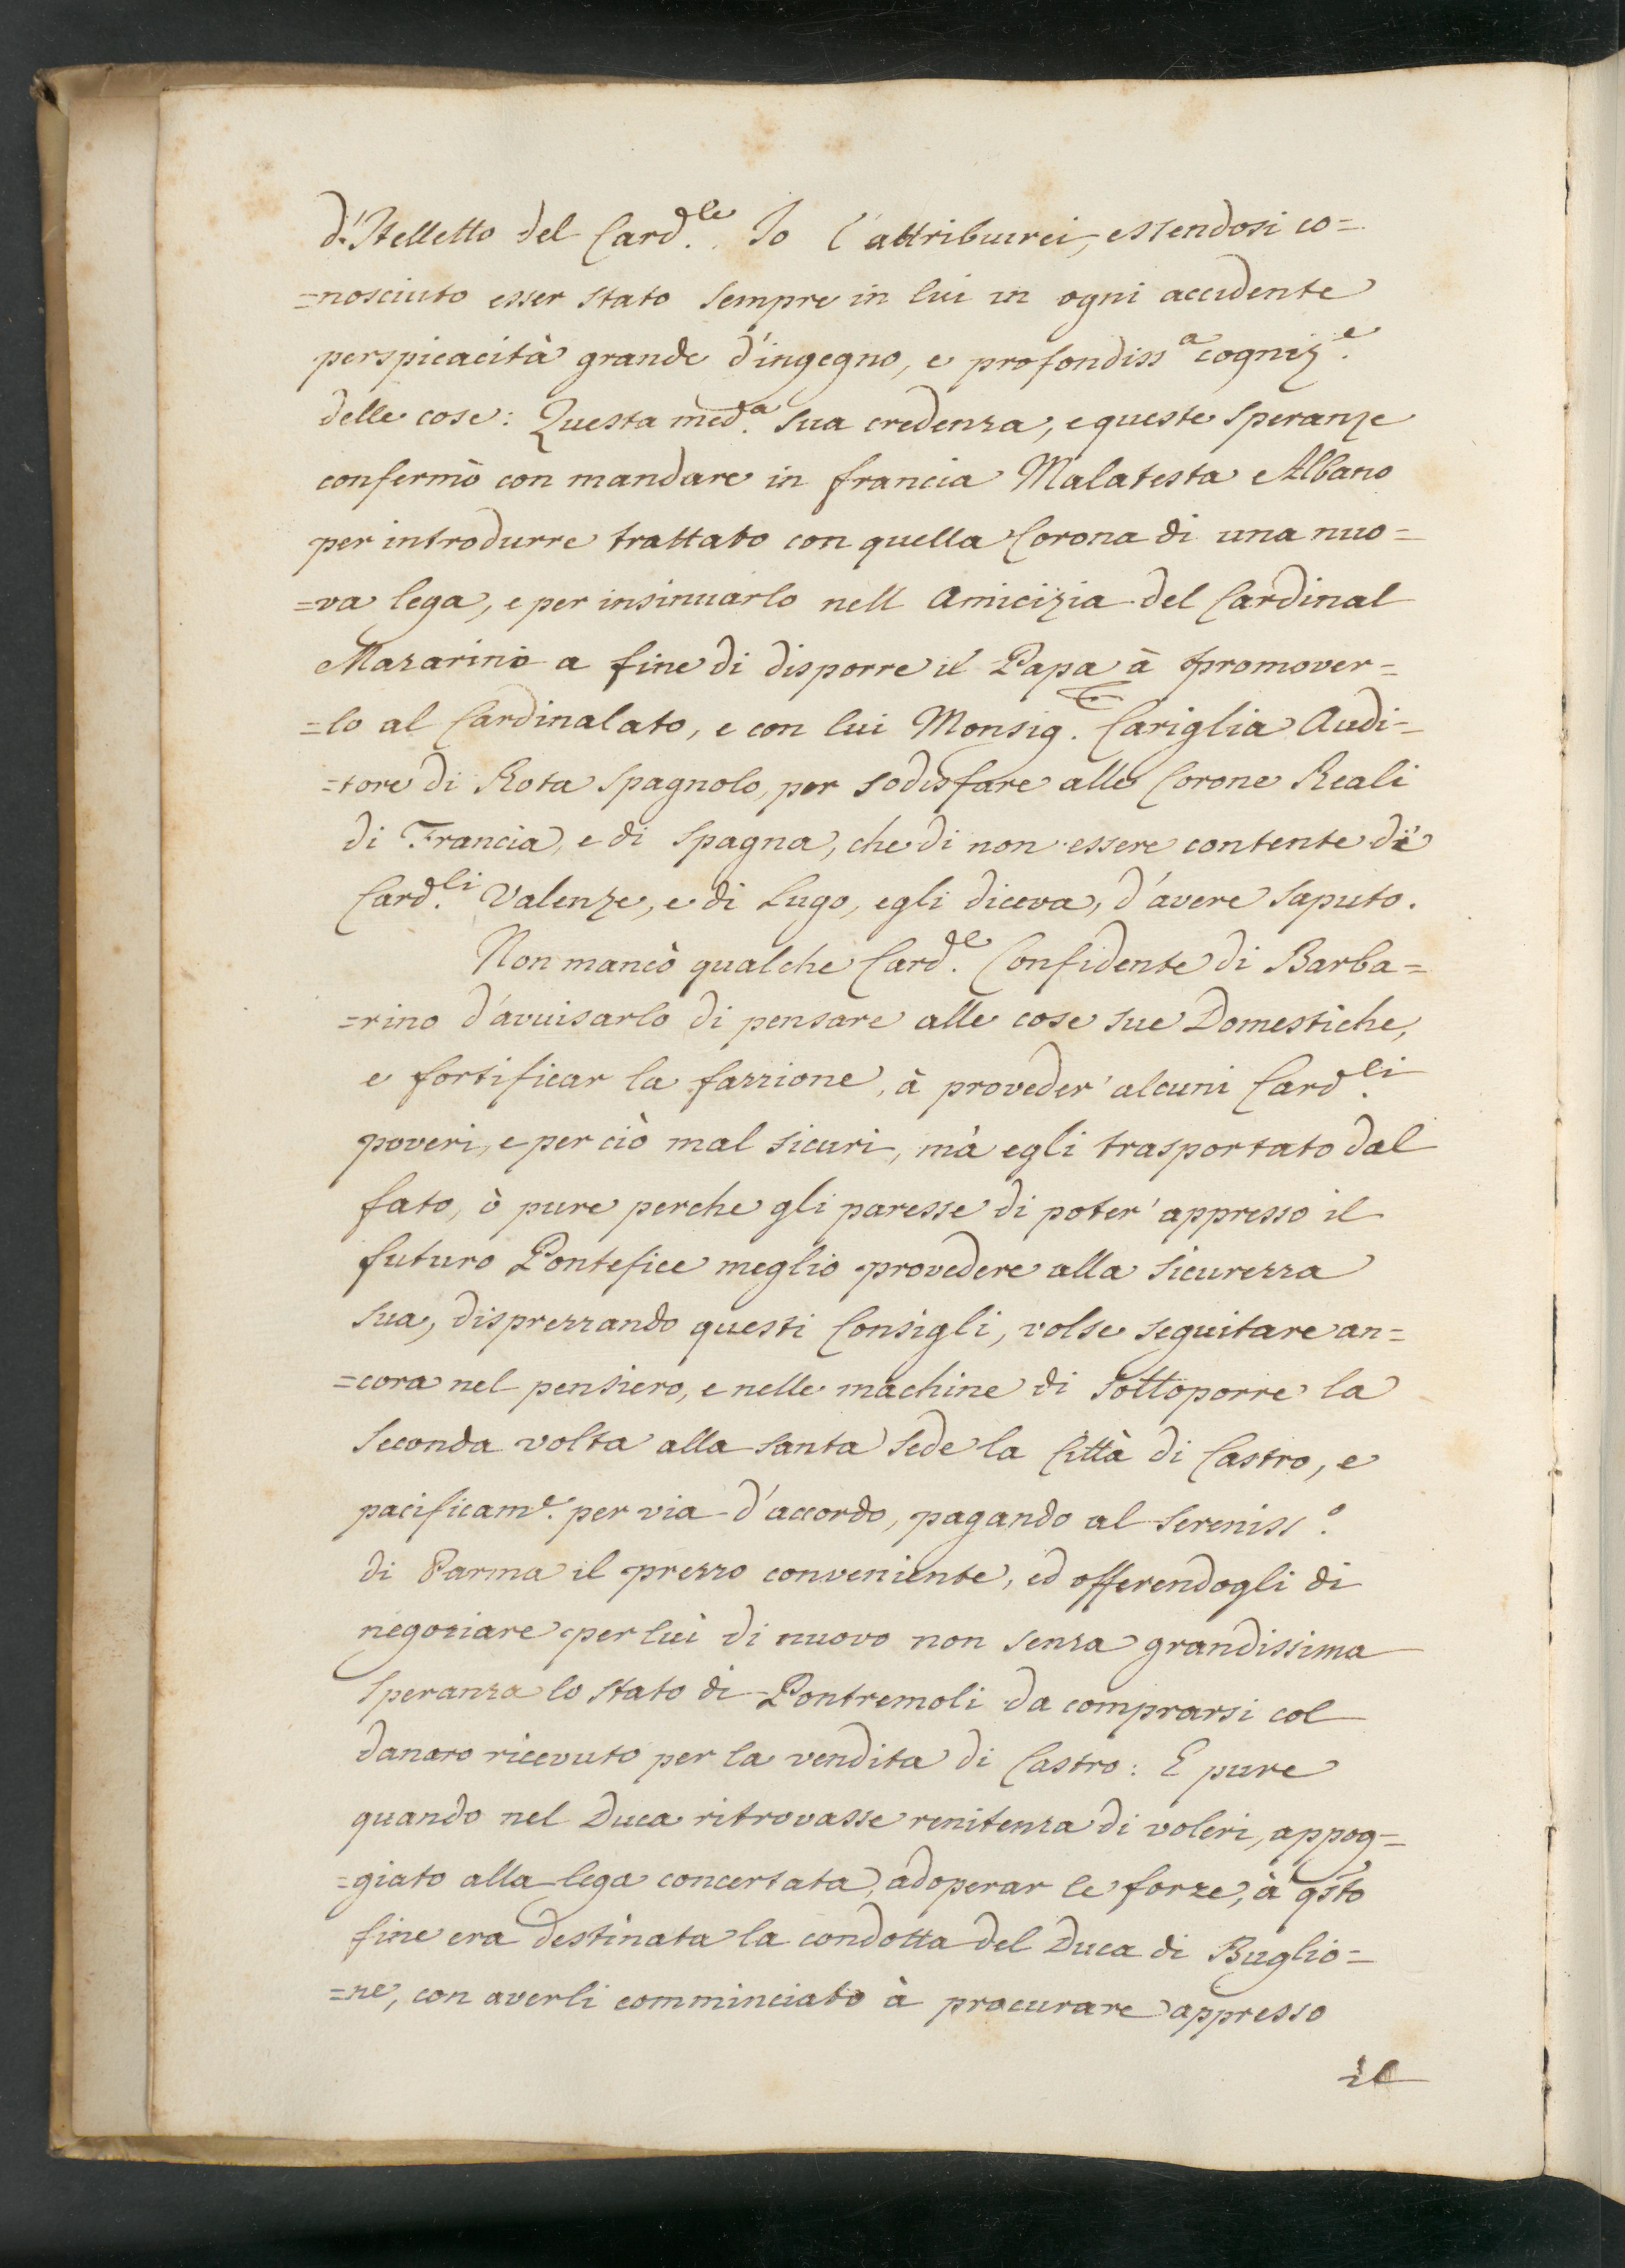 d'Itelletto del Card.le Io l'attribuirei, essendosi co=
=nosciuto esser stato sempre in lui in ogni accidente
perspicacità grande d'ingegno, e profondiss.a cogniz.e
delle cose: Questa med.a sua credenza, e queste speranze
confermò con mandare in francia Malatesta Albano
per introdurre trattato con quella Corona di una nuo=
=va lega, e per insinuarlo nell Amicizia del Cardinal
Mazarino a fine di disporre il Papa à promover=
=lo al Cardinalato, e con lui Monsig. Cariglia Audi=
=tore di Rota Spagnolo, per sodisfare alle Corone Reali
di Francia, e di Spagna, che di non essere contente di
Card.li Valenze, e di Lugo, egli diceva, d'avere saputo.
Non mancò qualche Card.le Confidente di Barba=
=rino d'avuisarlo di pensare alle cose sue Domestiche,
e fortificar la fazzione, à proveder' alcuni Card.li
poveri, e per ciò mal sicuri, mà egli trasportato dal
fato, ò pure perche gli paresse di poter' appresso il
futuro Pontefice meglio provedere alla sicurezza
sua, disprezzando questi Consigli, volse seguitare an=
=cora nel pensiero, e nelle machine di sottoporre la
seconda volta alla santa sede la Città di Castro, e
pacificam.e per via d'accordo, pagando al sereniss.o
di Parma il prezzo conveniente, ed offerendogli di
negoziare per lui di nuovo non senza grandissima
speranza lo stato di Pontremoli da comprarsi col
danaro ricevuto per la vendita di Castro: E pure
quando nel Duca ritrovasse renitenza di voleri, appog=
=giato alla lega concertata, adoperar le forze, à qsto
fine era destinata la condotta del Duca di Buglio=
=ne, con averli comminciato à procurare appresso
il